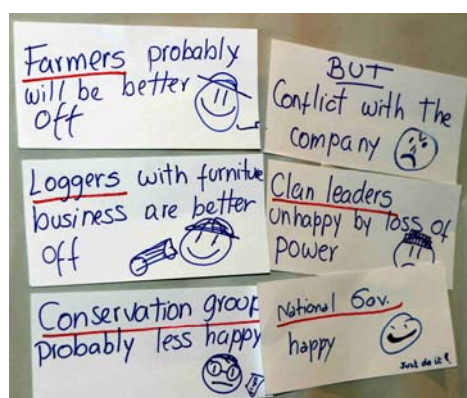 Farmers probably
will be better
off
BUT
Conflict with the
company
Loggers with furniture
business are better
off
Clan leaders
unhappy by loss of
power
Conservation group
Probably less happy
National Gov.
happy
Just do it!